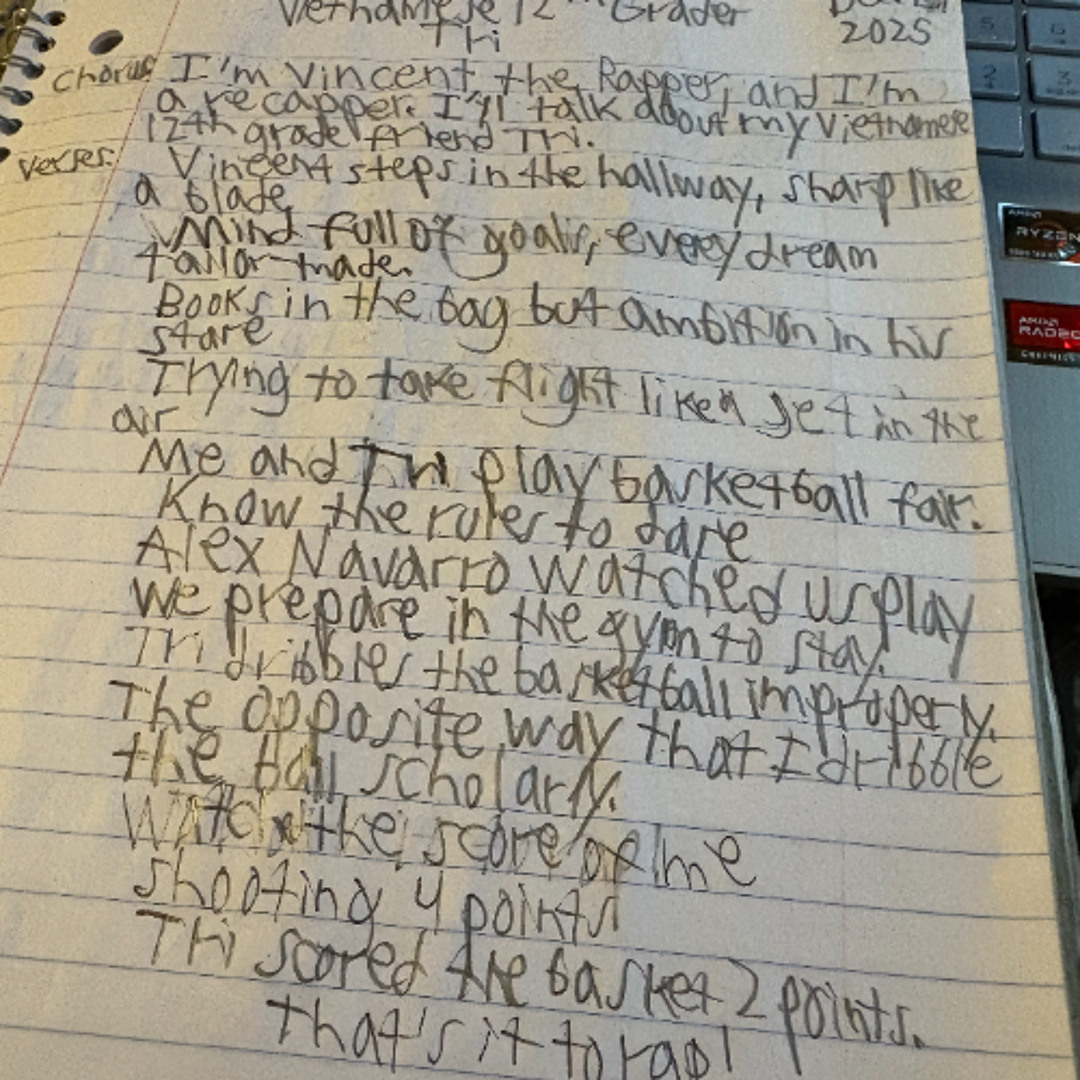 Vietnamese 12th Grader
Tri
2025
Chorus: I'm Vincent the Rapper, and I'm
a recapper. I'll talk about my Vietnamese
12th grade friend Tri.
Verses: Vincent steps in the hallway, sharp like
a blade,
Mind full of goals, every dream
tailor-made.
Books in the bag but ambition in his
stare
Trying to take flight like a jet in the
air
Me and Tri play basketball fair.
Know the rules to dare
Alex Navarro watched us play
We prepare in the gym to stay.
Tri dribbles the basketball improperly.
The opposite way that I dribble
the ball scholarly.
Watch the score of me
shooting 4 points
Tri scored the basket 2 points.
That's it to rap!
5
6
2
3
AMD
RYZEN
AMD
RADEON
GRAPHICS